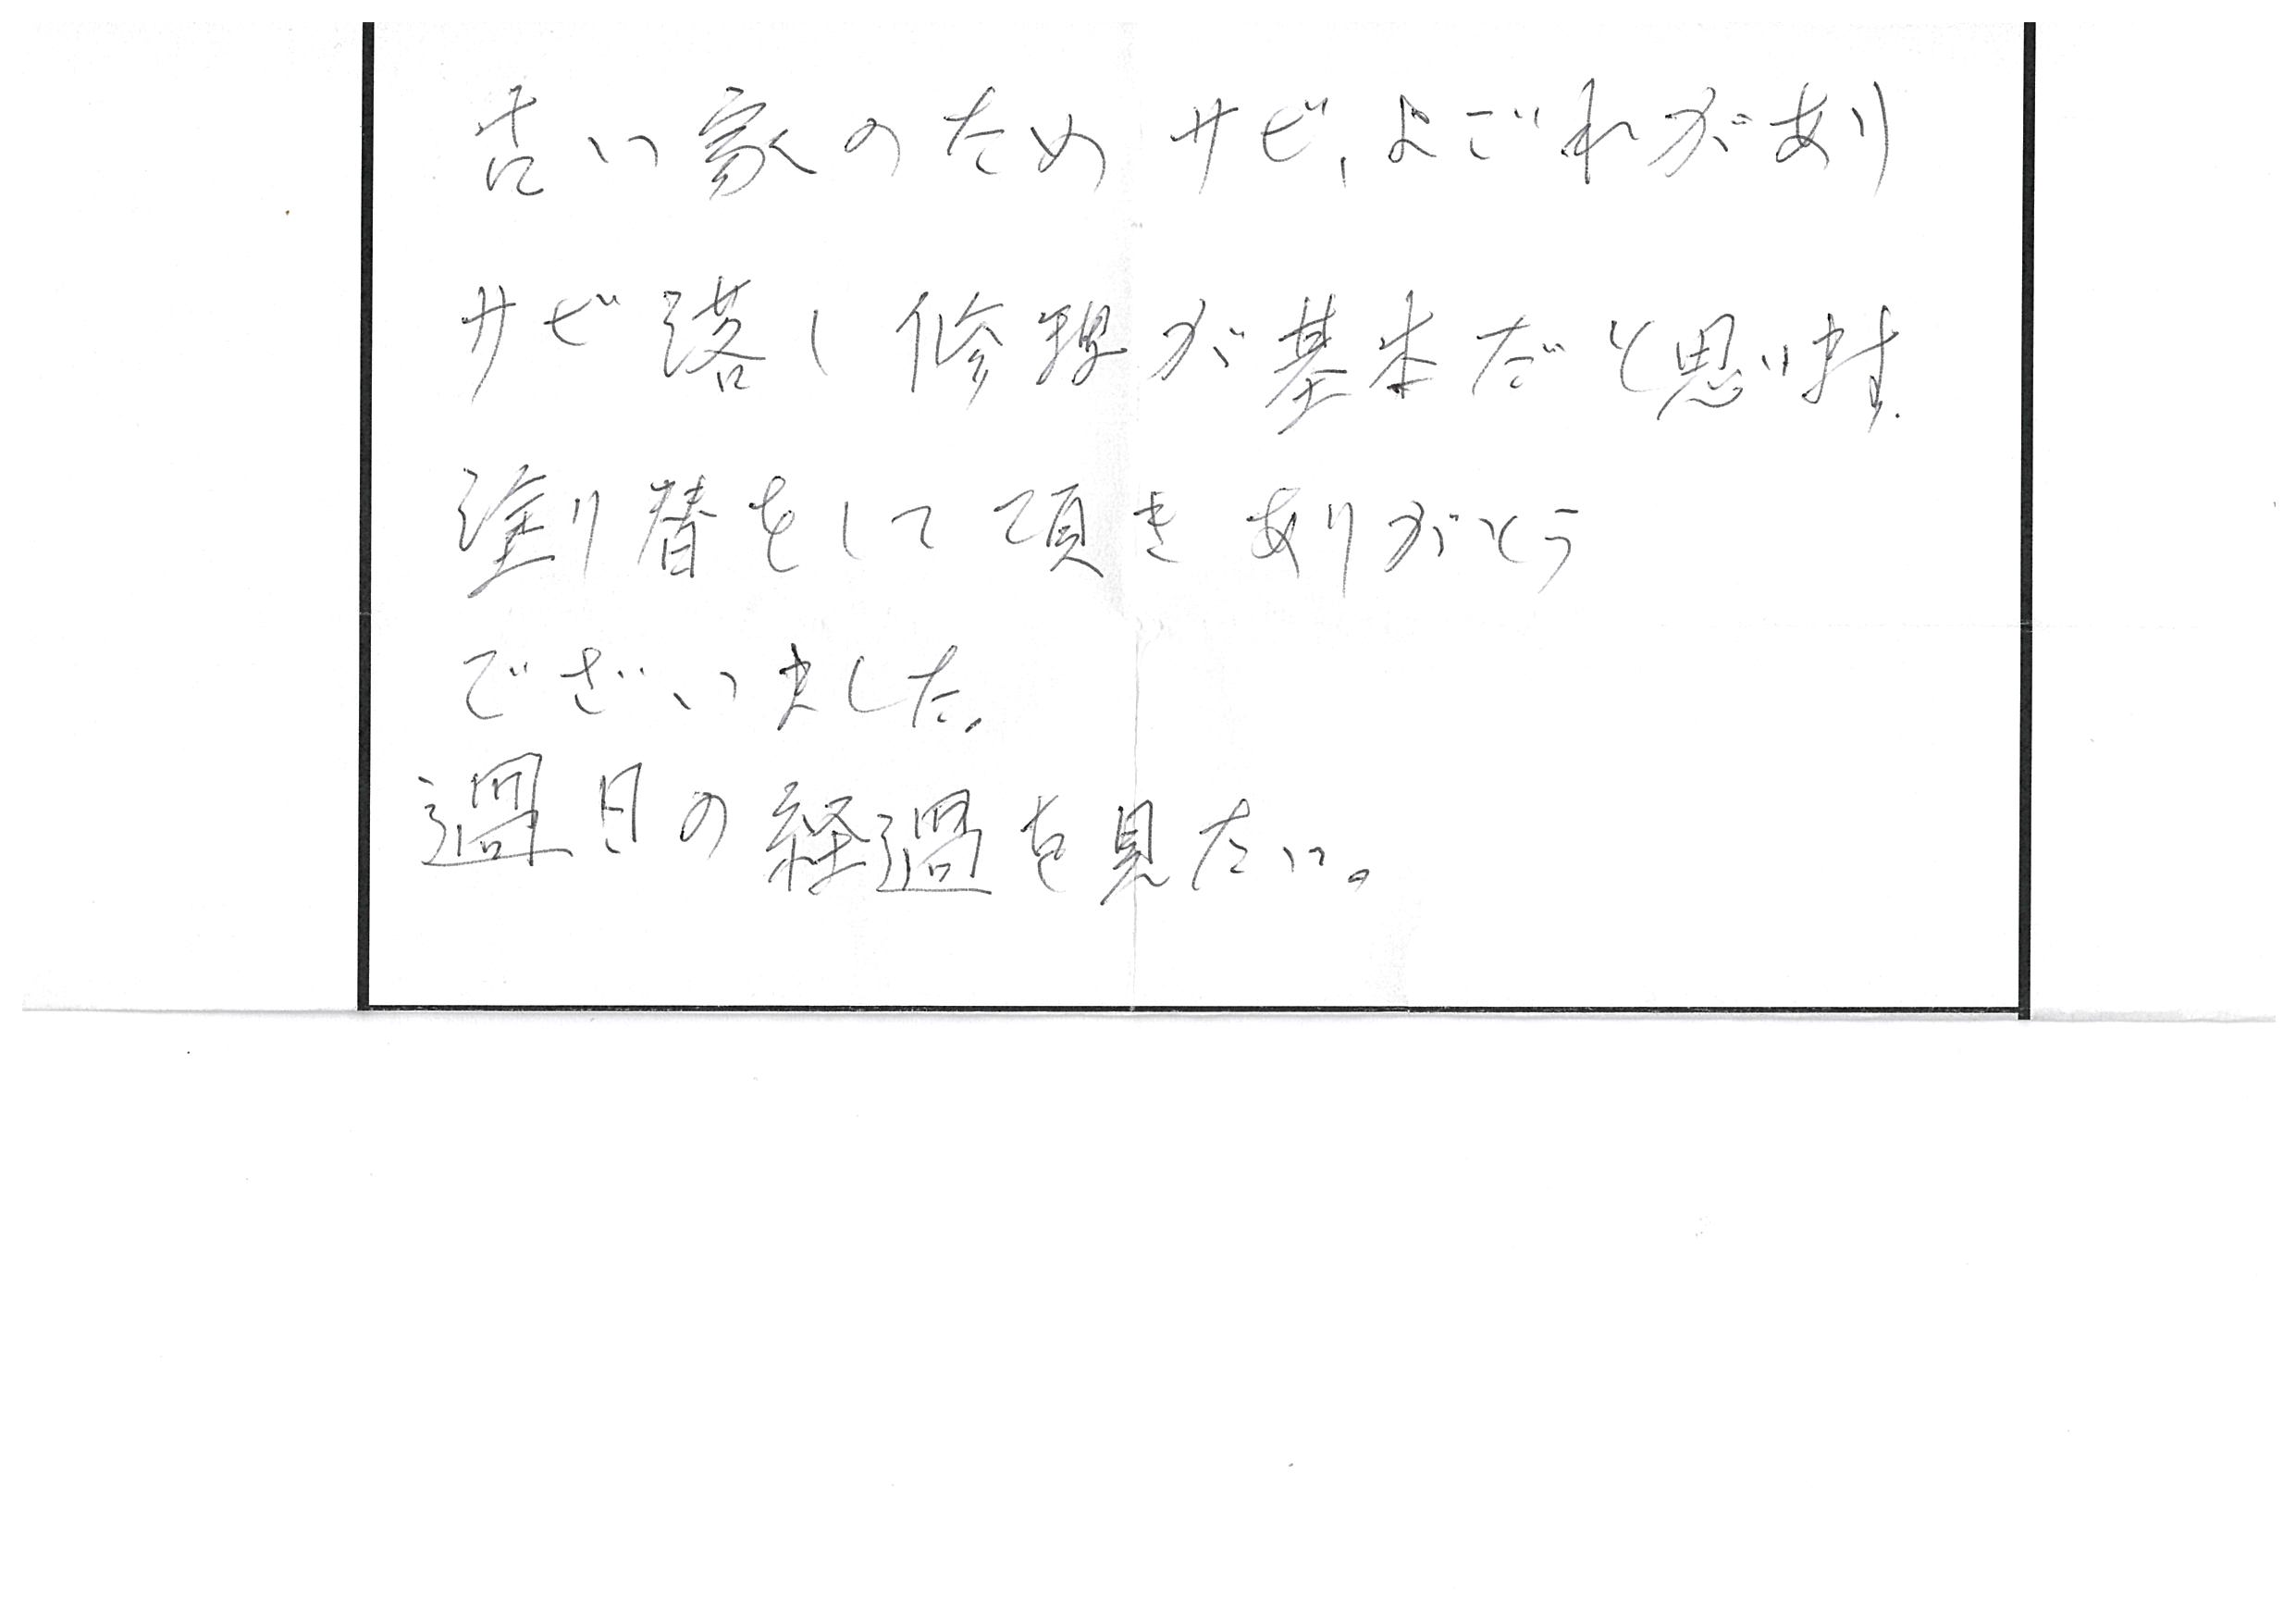 古い家のためサビ、よごれがあり
サビ落し修理が基本だと思います.
塗り替をして頂きありがとう
ございました。
週日の経過を見たい。